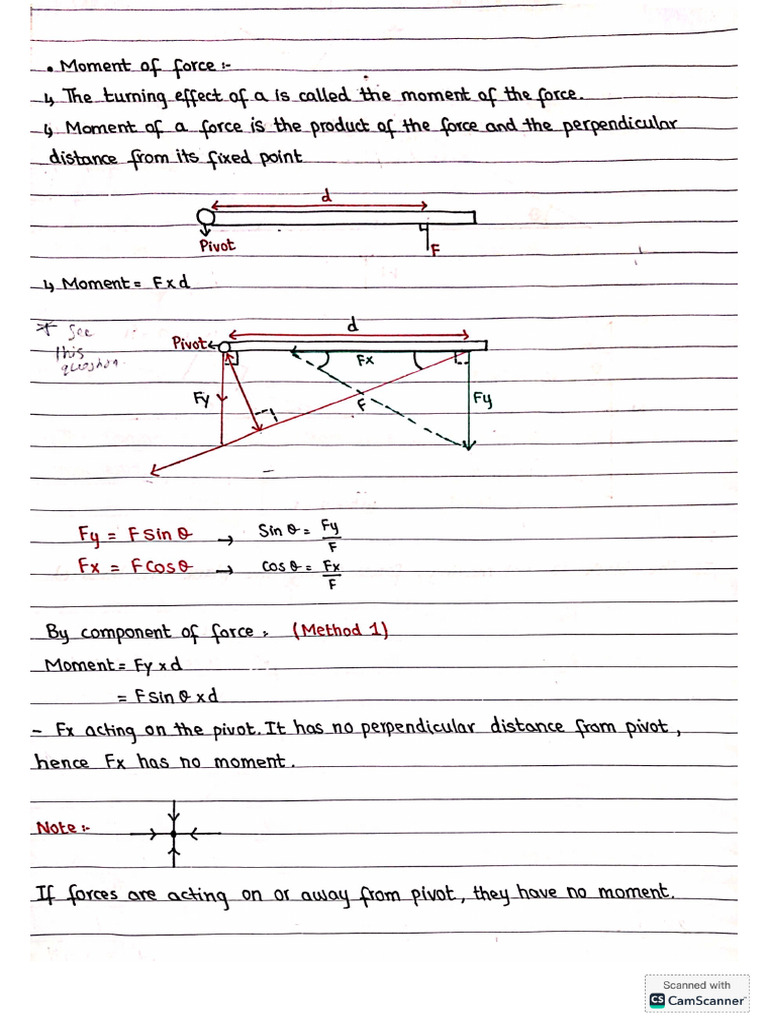 • Moment of force :-
↳ The turning effect of a is called the moment of the force.
↳ Moment of a force is the product of the force and the perpendicular
distance from its fixed point
d
Pivot
F
↳ Moment = F x d
* See
this
question.
d
Pivot
Fx
Fy
F
Fy
Fy = F sin θ → Sin θ = Fy/F
Fx = F cos θ → cos θ = Fx/F
By component of force : (Method 1)
Moment = Fy x d
= F sin θ x d
- Fx acting on the pivot. It has no perpendicular distance from pivot,
hence Fx has no moment.
Note :-
If forces are acting on or away from pivot, they have no moment.
Scanned with
CS CamScanner